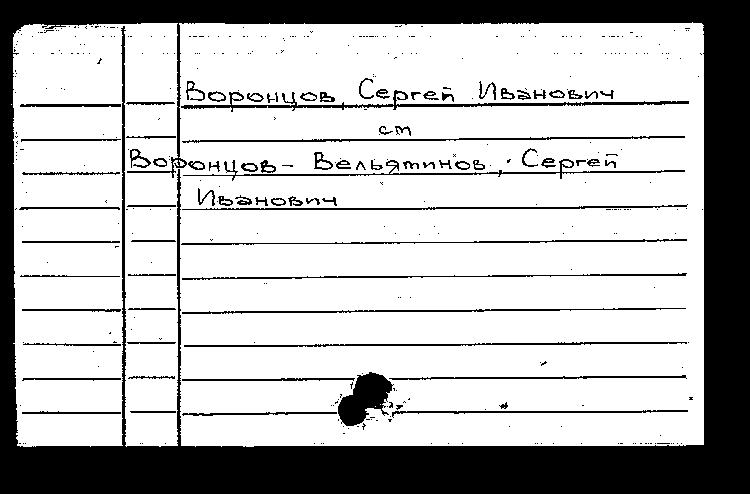 Воронцов, Сергей Иванович
см
Воронцов - Вельяминов, Сергей
Иванович